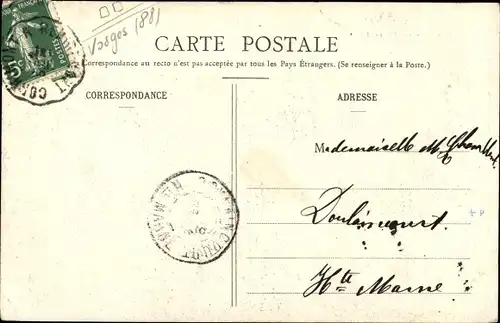 Vosges (88)
CARTE POSTALE
La Correspondance au recto n'est pas acceptée par tous les Pays Étrangers. (Se renseigner à la Poste.)
CORRESPONDANCE
ADRESSE
Mademoiselle M.
Doulaincourt
Hte Marne